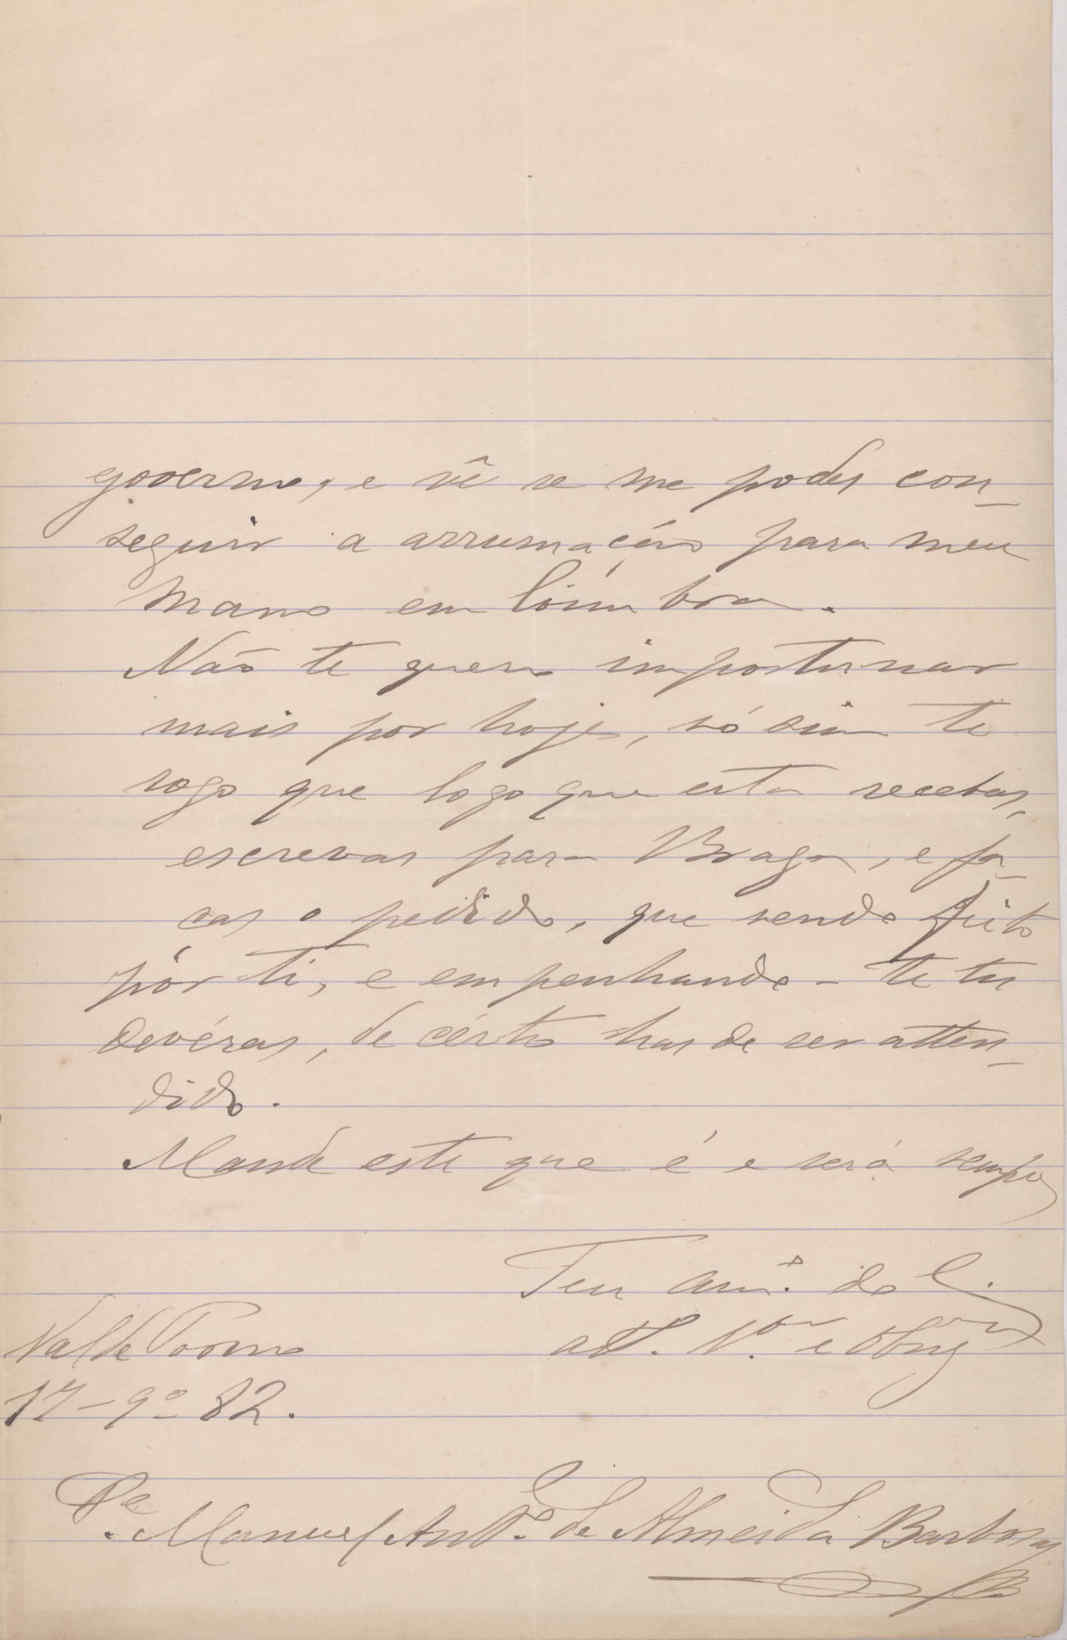 governo, e vê se me podes con-
seguir a arrumação para meu
mano em Coimbra.
Não te quero importunar
mais por hoje, só sim te
rogo que logo que esta recebas,
escrevas para Braga, e fa-
ças o pedido, que sendo feito
pôr ti, e empenhando-te tu
devéras, de cérto has de ser atten-
dido.
Manda este que é e será sempre
Teu am.º do C.
att. V.or e Obrg
Val de
17-9º-82.
Pe. Manuel Antº. de Almeida Barbosa